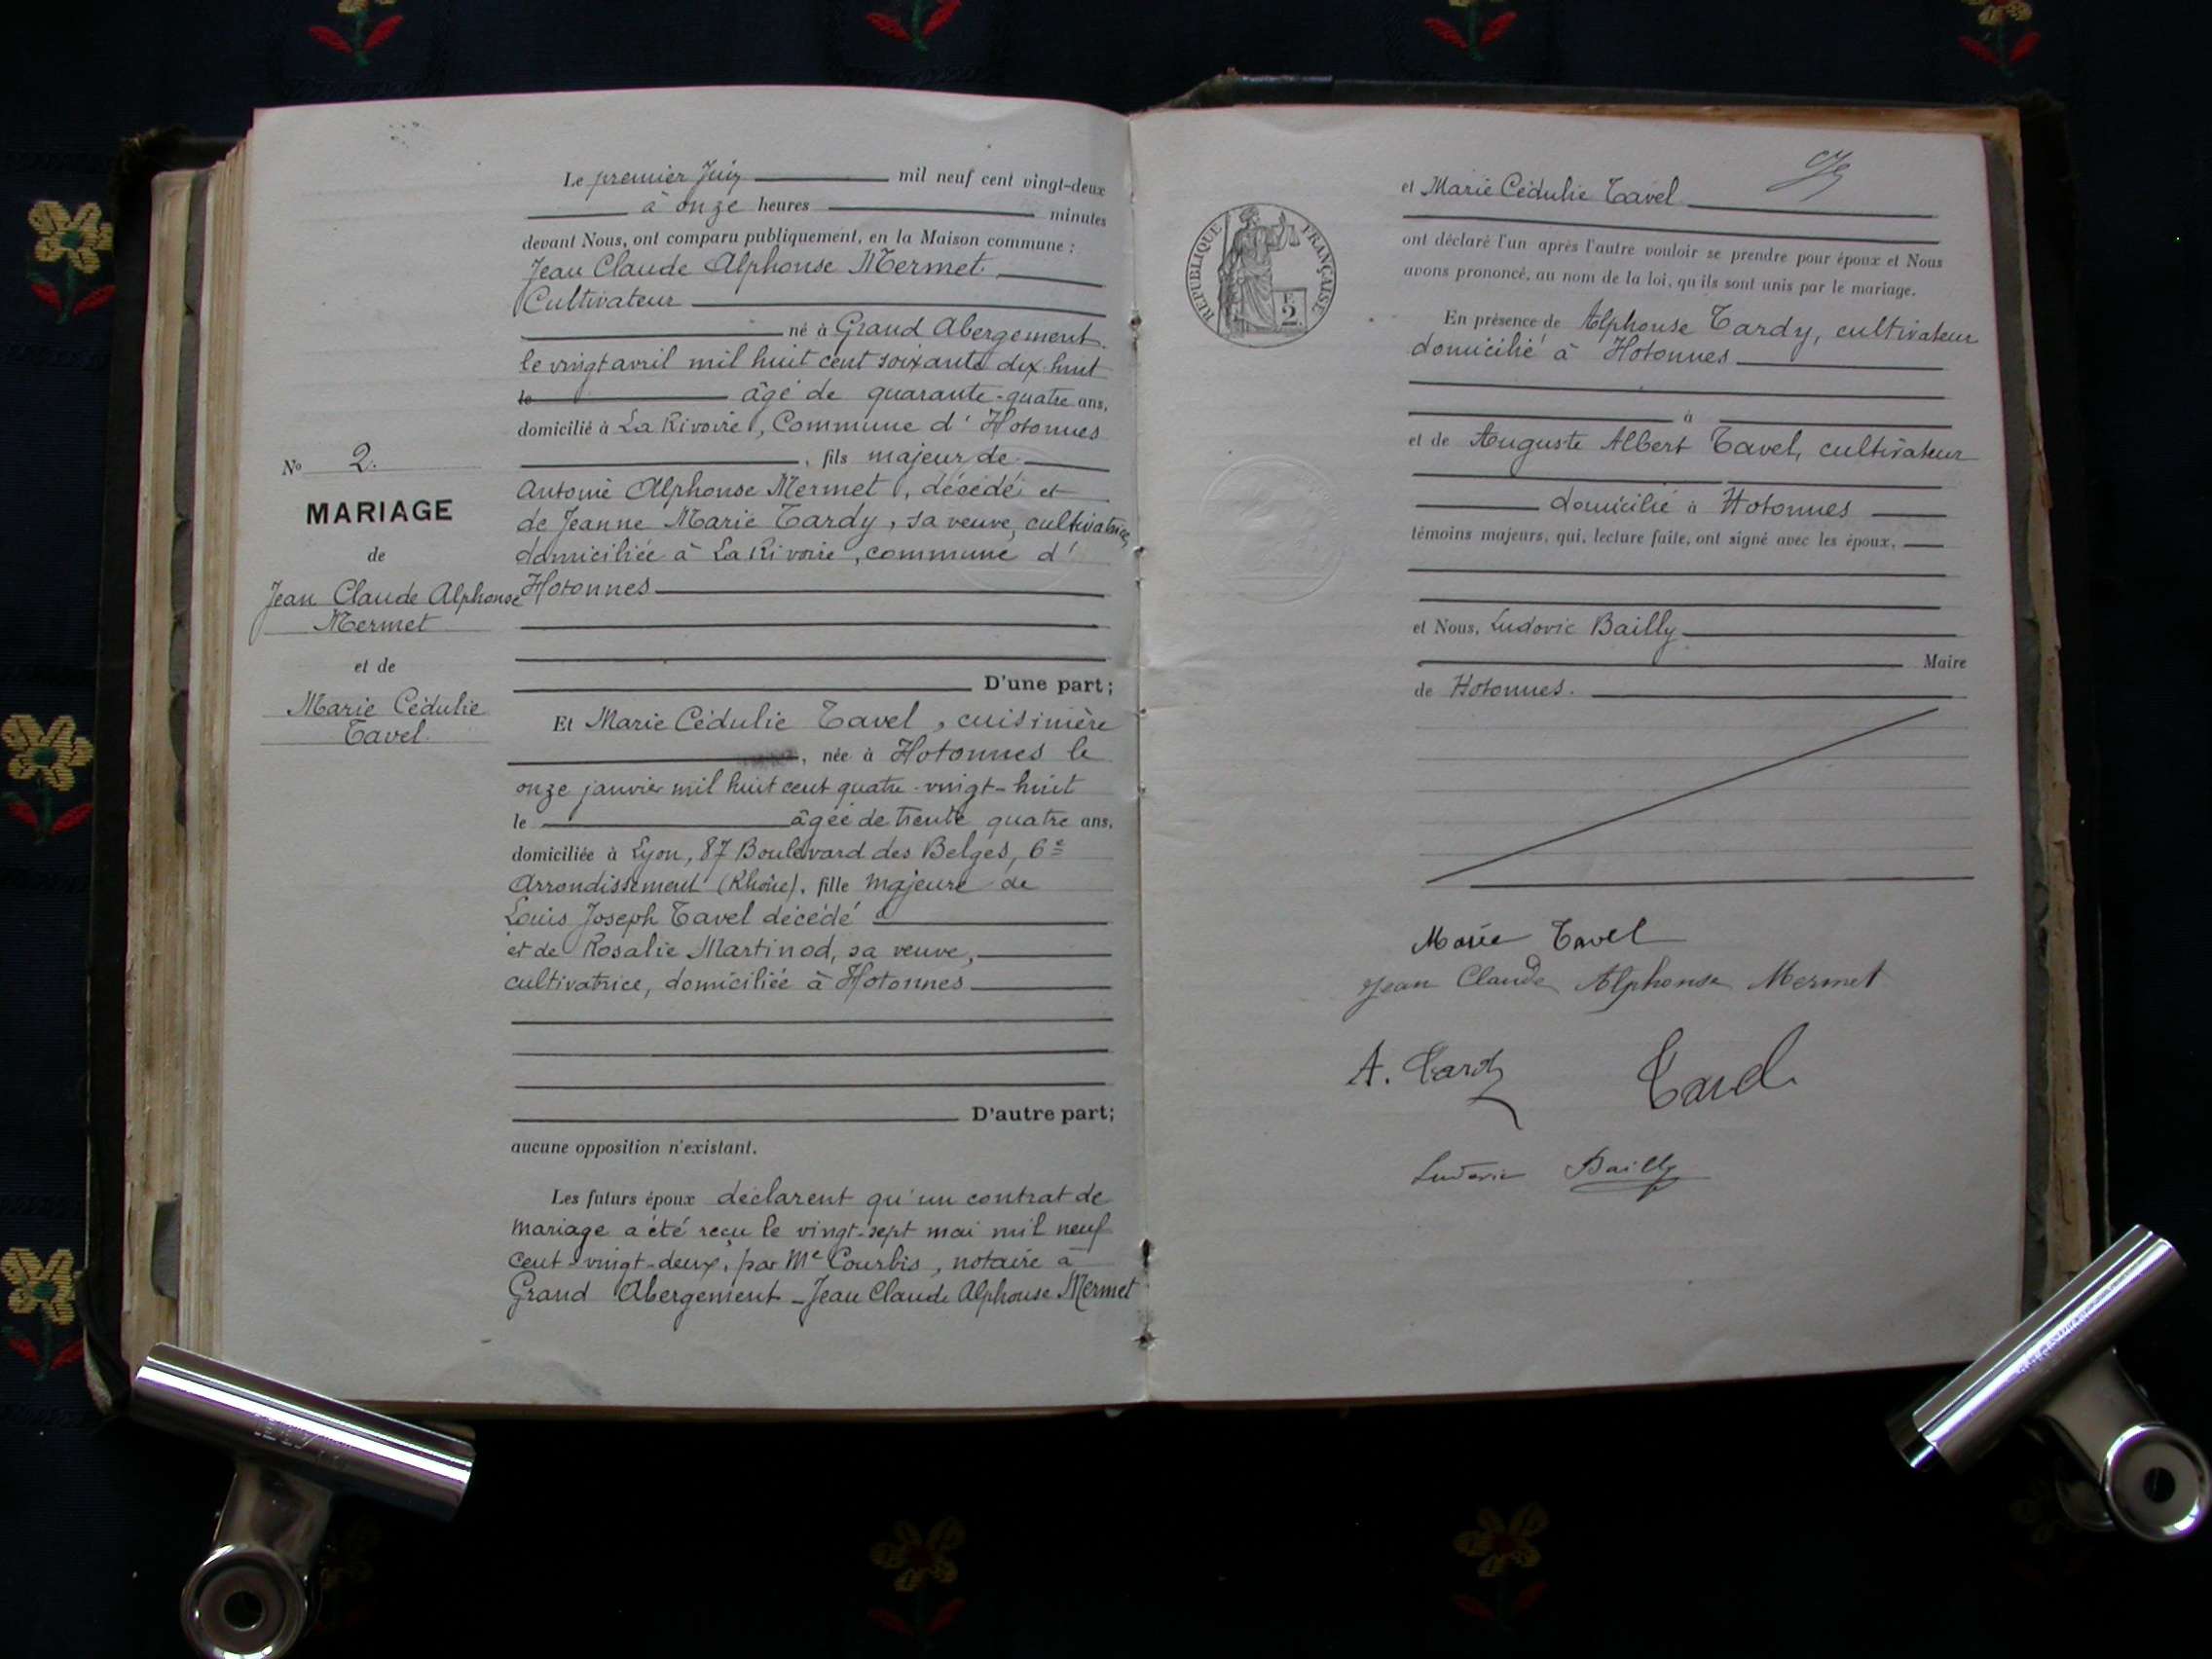 Le premier Juin mil neuf cent vingt-deux
à onze heures minutes
devant Nous, ont comparu publiquement, en la Maison commune :
Jean Claude Alphonse Mermet.
Cultivateur
né à Grand Abergement.
le vingt avril mil huit cent soixante dix-huit
le âgé de quarante-quatre ans,
domicilié à La Rivoire, Commune d'Hotonnes
, fils majeur de
Antoine Alphonse Mermet, décédé et
de Jeanne Marie Tardy, sa veuve, cultivatrice,
domiciliée à La Rivoire, commune d'
Hotonnes
D'une part;
Et Marie Cédulie Tavel, cuisinière
, née à Hotonnes le
onze janvier mil huit cent quatre-vingt-huit
le âgée de trente quatre ans,
domiciliée à Lyon, 87 Boulevard des Belges, 6e
Arrondissement (Rhône), fille majeure de
Louis Joseph Tavel décédé
et de Rosalie Martinod, sa veuve,
cultivatrice, domiciliée à Hotonnes
D'autre part;
aucune opposition n'existant.
Les futurs époux déclarent qu'un contrat de
mariage a été reçu le vingt-sept mai mil neuf
cent vingt-deux, par Me Courbis, notaire à
Grand Abergement - Jean Claude Alphonse Mermet
No 2.
MARIAGE
de
Jean Claude Alphonse
Mermet
et de
Marie Cédulie
Tavel.
RÉPUBLIQUE FRANÇAISE
2
et Marie Cédulie Tavel
ont déclaré l'un après l'autre vouloir se prendre pour époux et Nous
avons prononcé, au nom de la loi, qu'ils sont unis par le mariage.
En présence de Alphonse Tardy, cultivateur
domicilié à Hotonnes
à
et de Auguste Albert Tavel, cultivateur
domicilié à Hotonnes
témoins majeurs, qui, lecture faite, ont signé avec les époux,
et Nous, Ludovic Bailly
Maire
de Hotonnes.
Marie Tavel
Jean Claude Alphonse Mermet
A. Tardy
Tavel
Ludovic Bailly